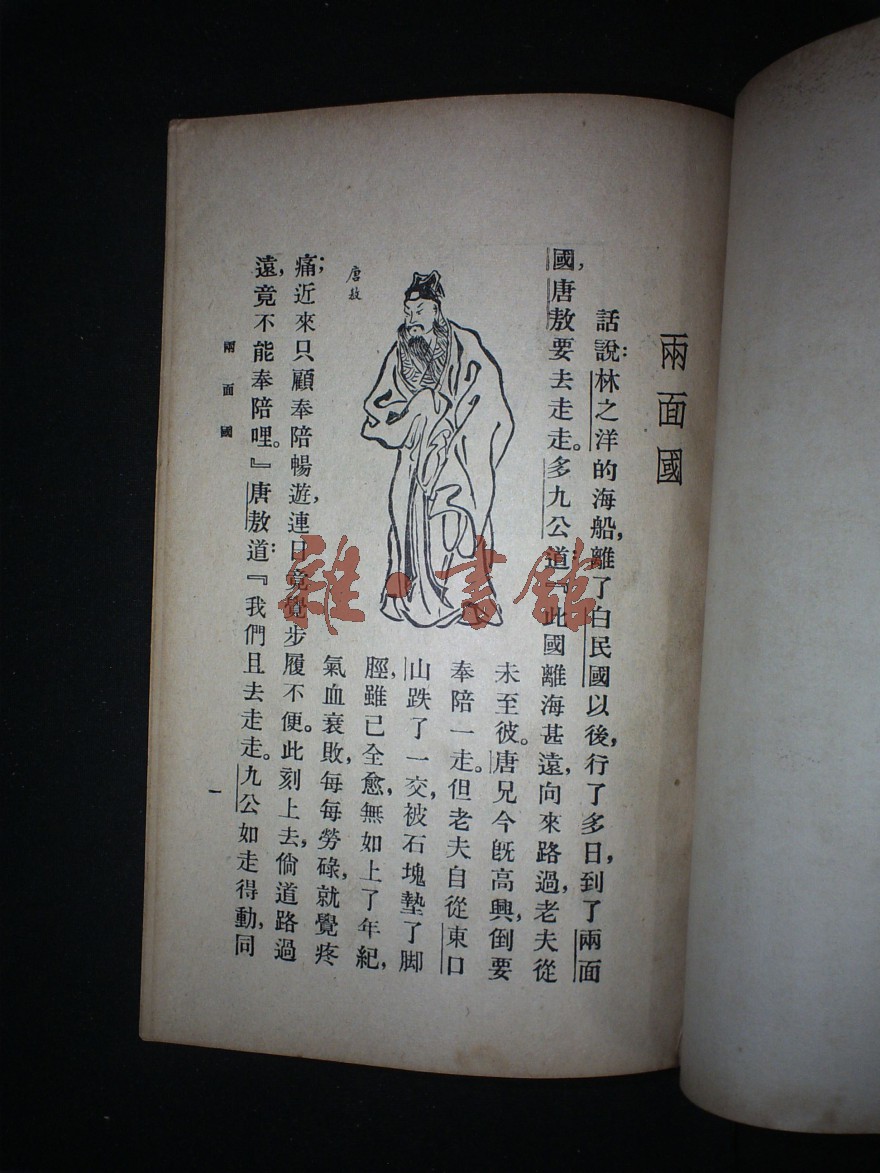 兩面國
話說：林之洋的海船，離了白民國以後，行了多日，到了兩面
國，唐敖要去走走。多九公道：『此國離海甚遠，向來路過，老夫從
未至彼。唐兄今旣高興，倒要
奉陪一走。但老夫自從東口
山跌了一交，被石塊墊了脚
脛，雖已全愈，無如上了年紀，
氣血衰敗，每每勞碌，就覺疼
痛；近來只顧奉陪暢遊，連日竟覺步履不便。此刻上去，倘道路過
遠，竟不能奉陪哩。』唐敖道：『我們且去走走。九公如走得動，同
唐敖
兩面國
一
雜·書館